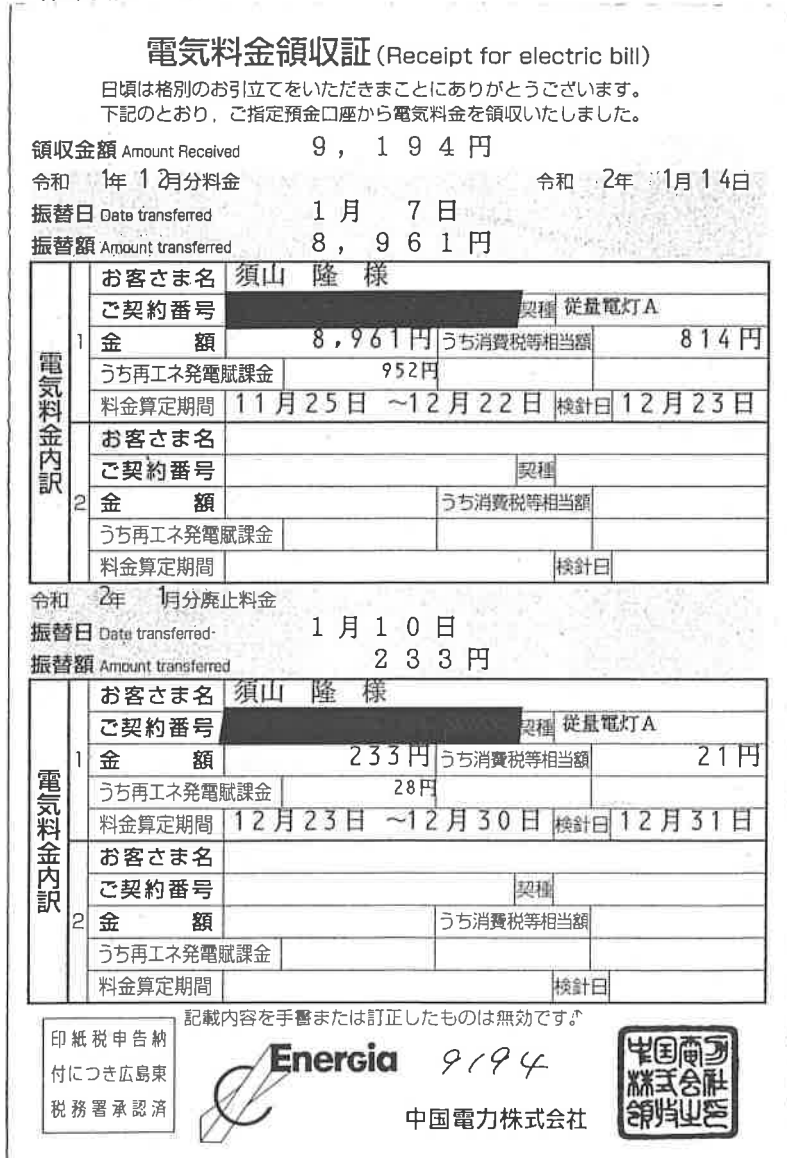 電気料金領収証 (Receipt for electric bill)
日頃は格別のお引立てをいただきまことにありがとうございます。
下記のとおり，ご指定預金口座から電気料金を領収いたしました。
領収金額 Amount Received 9,194円
令和 1年12月分料金 令和 2年 1月14日
振替日 Date transferred 1月 7日
振替額 Amount transferred 8,961円
電気料金内訳
1
お客さま名 須山 隆 様
ご契約番号 契種 従量電灯A
金 額 8,961円 うち消費税等相当額 814円
うち再エネ発電賦課金 952円
料金算定期間 11月25日 ~12月22日 検針日 12月23日
2
お客さま名
ご契約番号 契種
金 額 うち消費税等相当額
うち再エネ発電賦課金
料金算定期間 検針日
令和 2年 1月分廃止料金
振替日 Date transferred 1月10日
振替額 Amount transferred 233円
電気料金内訳
1
お客さま名 須山 隆 様
ご契約番号 契種 従量電灯A
金 額 233円 うち消費税等相当額 21円
うち再エネ発電賦課金 28円
料金算定期間 12月23日 ~12月30日 検針日 12月31日
2
お客さま名
ご契約番号 契種
金 額 うち消費税等相当額
うち再エネ発電賦課金
料金算定期間 検針日
記載内容を手書または訂正したものは無効です。
印紙税申告納
付につき広島東
税務署承認済
Energia 9194
中国電力株式会社